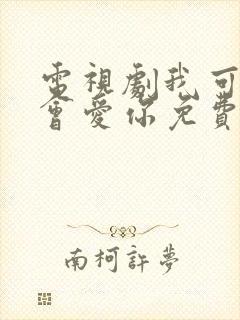 電視劇我可
會愛你免費
南柯許夢